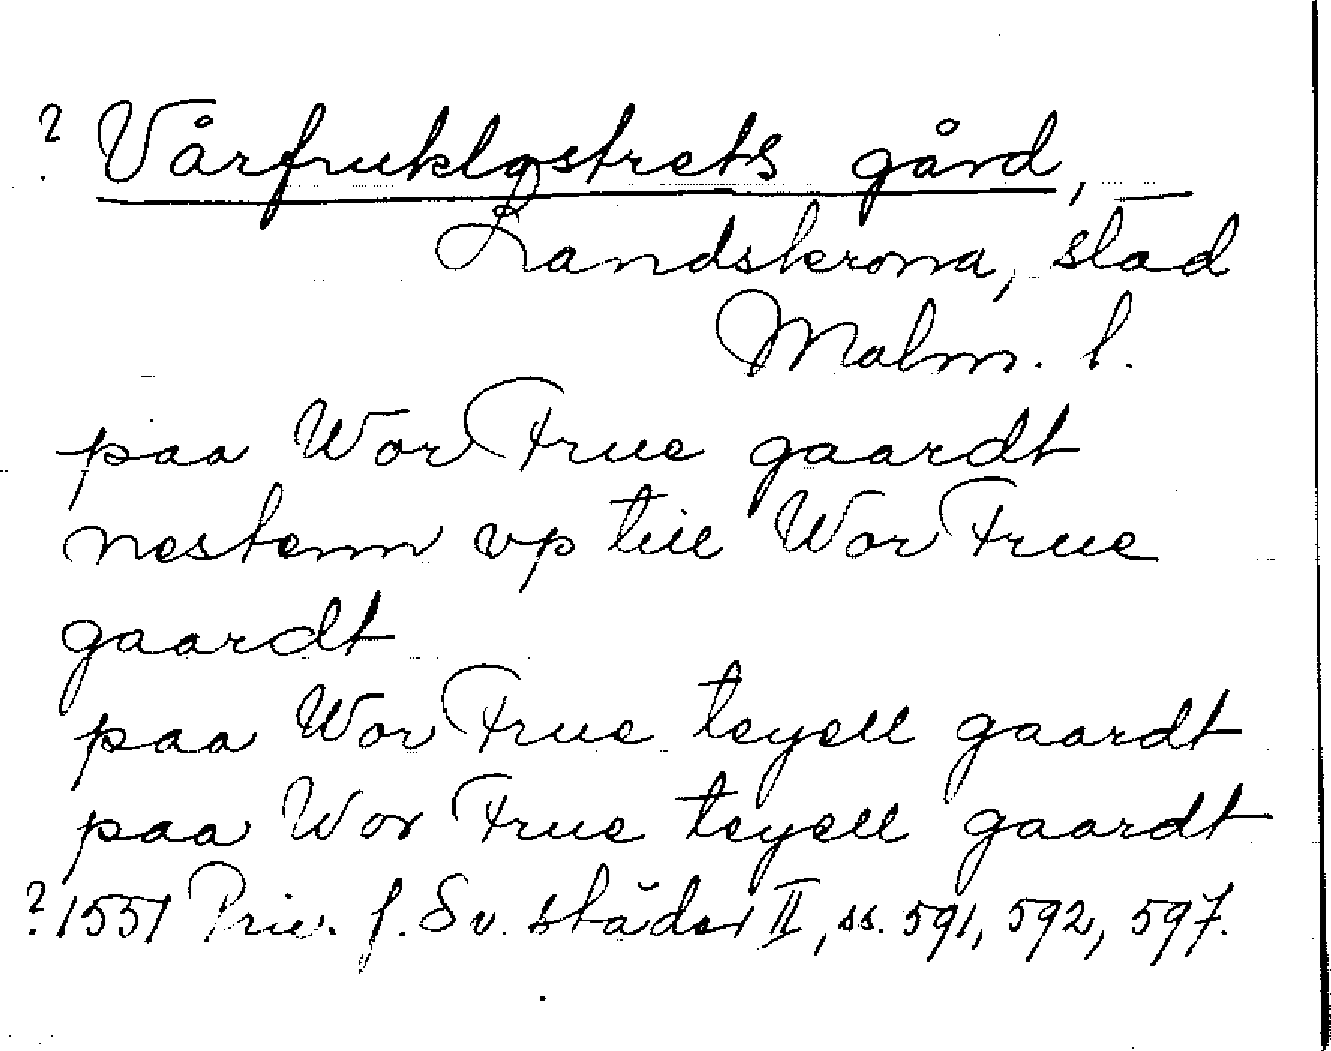 ? Vårfruklostrets gård,
Landskrona, stad
Malm. l.
paa Wor Frue gaardt
nestenn vp till Wor Frue
gaardt
paa Wor Frue teyell gaardt
paa Wor Frue teyell gaardt
? 1551 Priv. f. Sv. städer II, ss. 591, 592, 597.